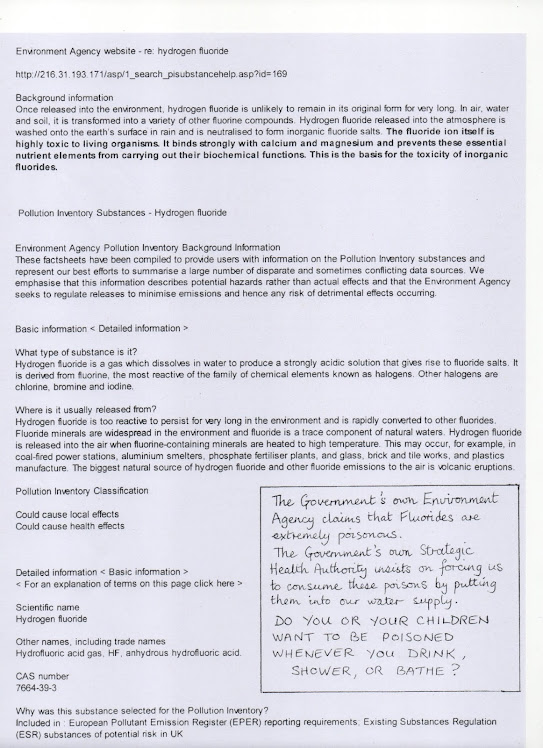 Environment Agency website - re: hydrogen fluoride
http://216.31.193.171/asp/1_search_pisubstancehelp.asp?id=169
Background information
Once released into the environment, hydrogen fluoride is unlikely to remain in its original form for very long. In air, water
and soil, it is transformed into a variety of other fluorine compounds. Hydrogen fluoride released into the atmosphere is
washed onto the earth's surface in rain and is neutralised to form inorganic fluoride salts. The fluoride ion itself is
highly toxic to living organisms. It binds strongly with calcium and magnesium and prevents these essential
nutrient elements from carrying out their biochemical functions. This is the basis for the toxicity of inorganic
fluorides.
Pollution Inventory Substances - Hydrogen fluoride
Environment Agency Pollution Inventory Background Information
These factsheets have been compiled to provide users with information on the Pollution Inventory substances and
represent our best efforts to summarise a large number of disparate and sometimes conflicting data sources. We
emphasise that this information describes potential hazards rather than actual effects and that the Environment Agency
seeks to regulate releases to minimise emissions and hence any risk of detrimental effects occurring.
Basic information < Detailed information >
What type of substance is it?
Hydrogen fluoride is a gas which dissolves in water to produce a strongly acidic solution that gives rise to fluoride salts. It
is derived from fluorine, the most reactive of the family of chemical elements known as halogens. Other halogens are
chlorine, bromine and iodine.
Where is it usually released from?
Hydrogen fluoride is too reactive to persist for very long in the environment and is rapidly converted to other fluorides.
Fluoride minerals are widespread in the environment and fluoride is a trace component of natural waters. Hydrogen fluoride
is released into the air when fluorine-containing minerals are heated to high temperature. This may occur, for example, in
coal-fired power stations, aluminium smelters, phosphate fertiliser plants, and glass, brick and tile works, and plastics
manufacture. The biggest natural source of hydrogen fluoride and other fluoride emissions to the air is volcanic eruptions.
Pollution Inventory Classification
Could cause local effects
Could cause health effects
Detailed information < Basic information >
< For an explanation of terms on this page click here >
Scientific name
Hydrogen fluoride
Other names, including trade names
Hydrofluoric acid gas, HF, anhydrous hydrofluoric acid.
CAS number
7664-39-3
The Government's own Environment
Agency claims that Fluorides are
extremely poisonous.
The Government's own Strategic
Health Authority insists on forcing us
to consume these poisons by putting
them into our water supply.
DO YOU OR YOUR CHILDREN
WANT TO BE POISONED
WHENEVER YOU DRINK,
SHOWER, OR BATHE?
Why was this substance selected for the Pollution Inventory?
Included in : European Pollutant Emission Register (EPER) reporting requirements; Existing Substances Regulation
(ESR) substances of potential risk in UK